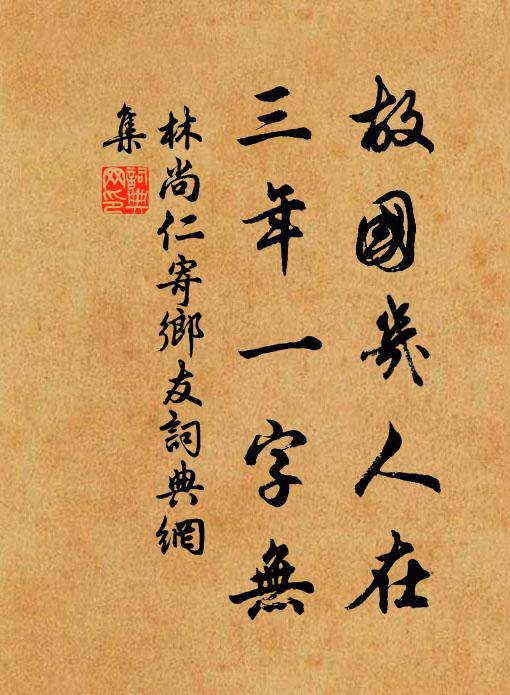 故國幾人在
三年一字無
林尚仁寄鄉友詞典網
集
詞典網印